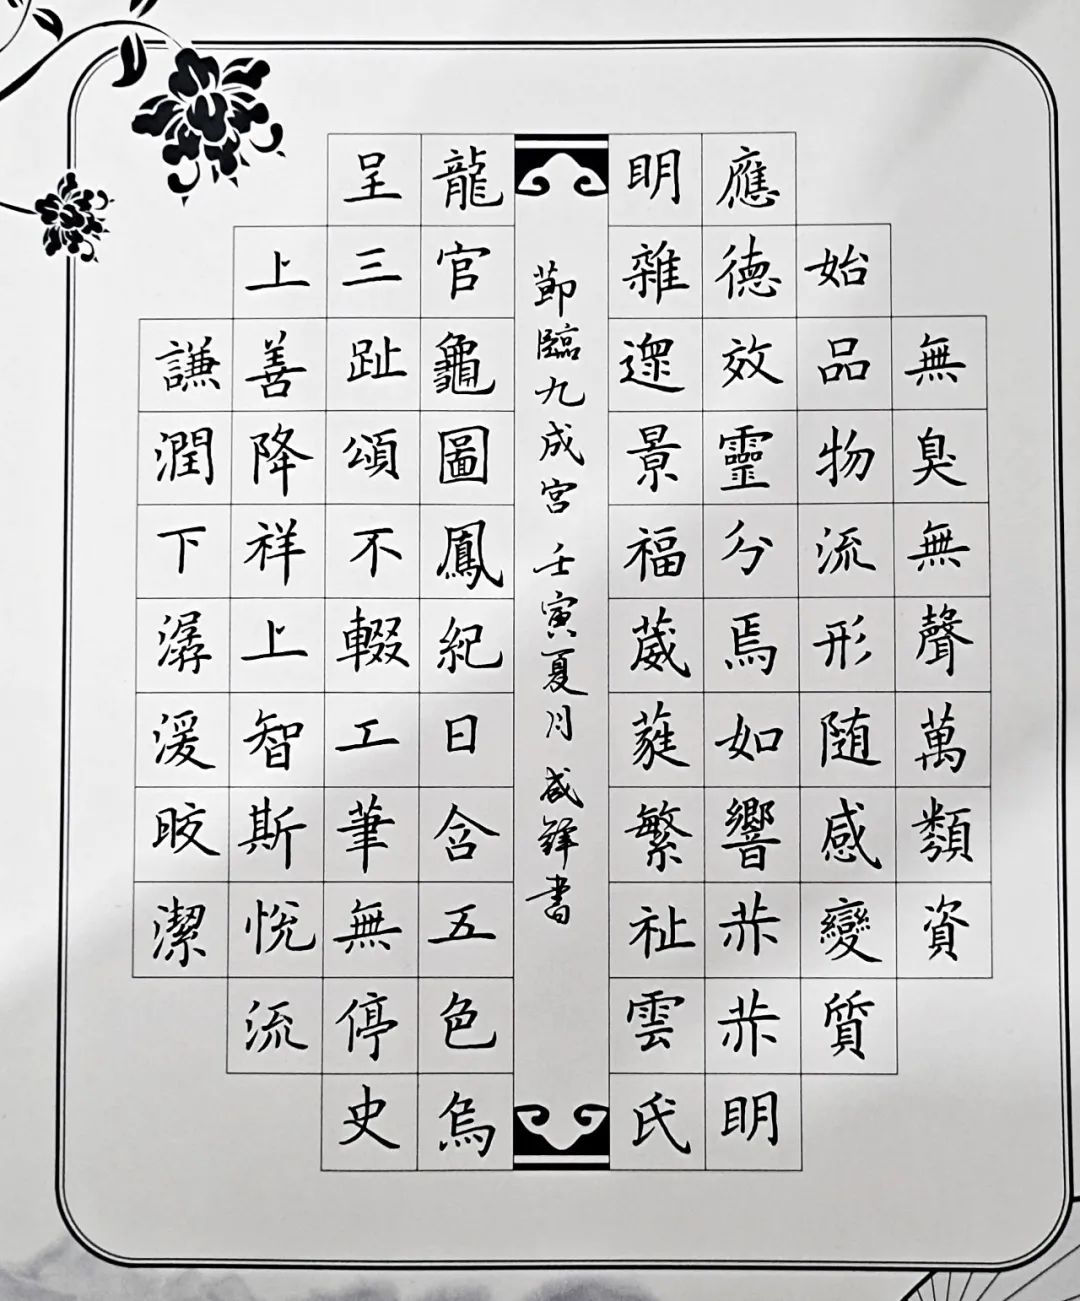 無臭無聲萬類資
始品物流形随感變質
應德效靈介焉如響赫赫明
明雜遝景福葳蕤繁祉雲氏
節臨九成宮 壬寅夏月 咸鋒書
龍官龜圖鳳紀日含五色烏
呈三趾頌不輟工筆無停史
上善降祥上智斯悅流
謙潤下潺湲晈潔